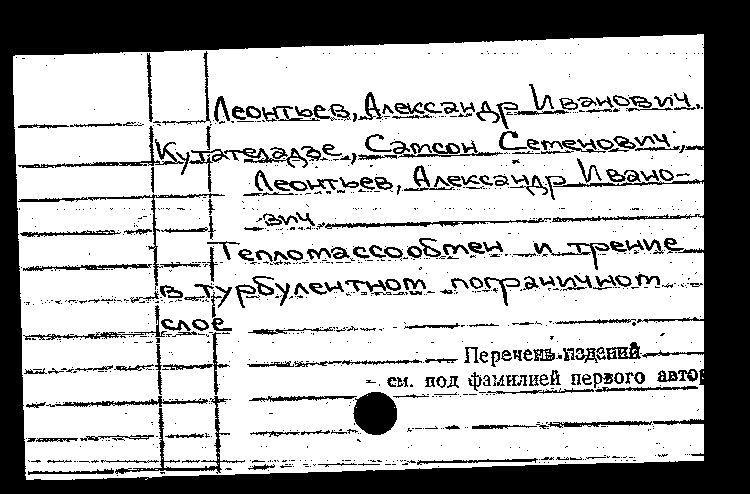 Леонтьев, Александр Иванович.
Кутателадзе, Самсон Семенович,
Леонтьев, Александр Ивано-
вич
Тепломассообмен и трение
в турбулентном пограничном
слое
Перечень изданий
- см. под фамилией первого автор